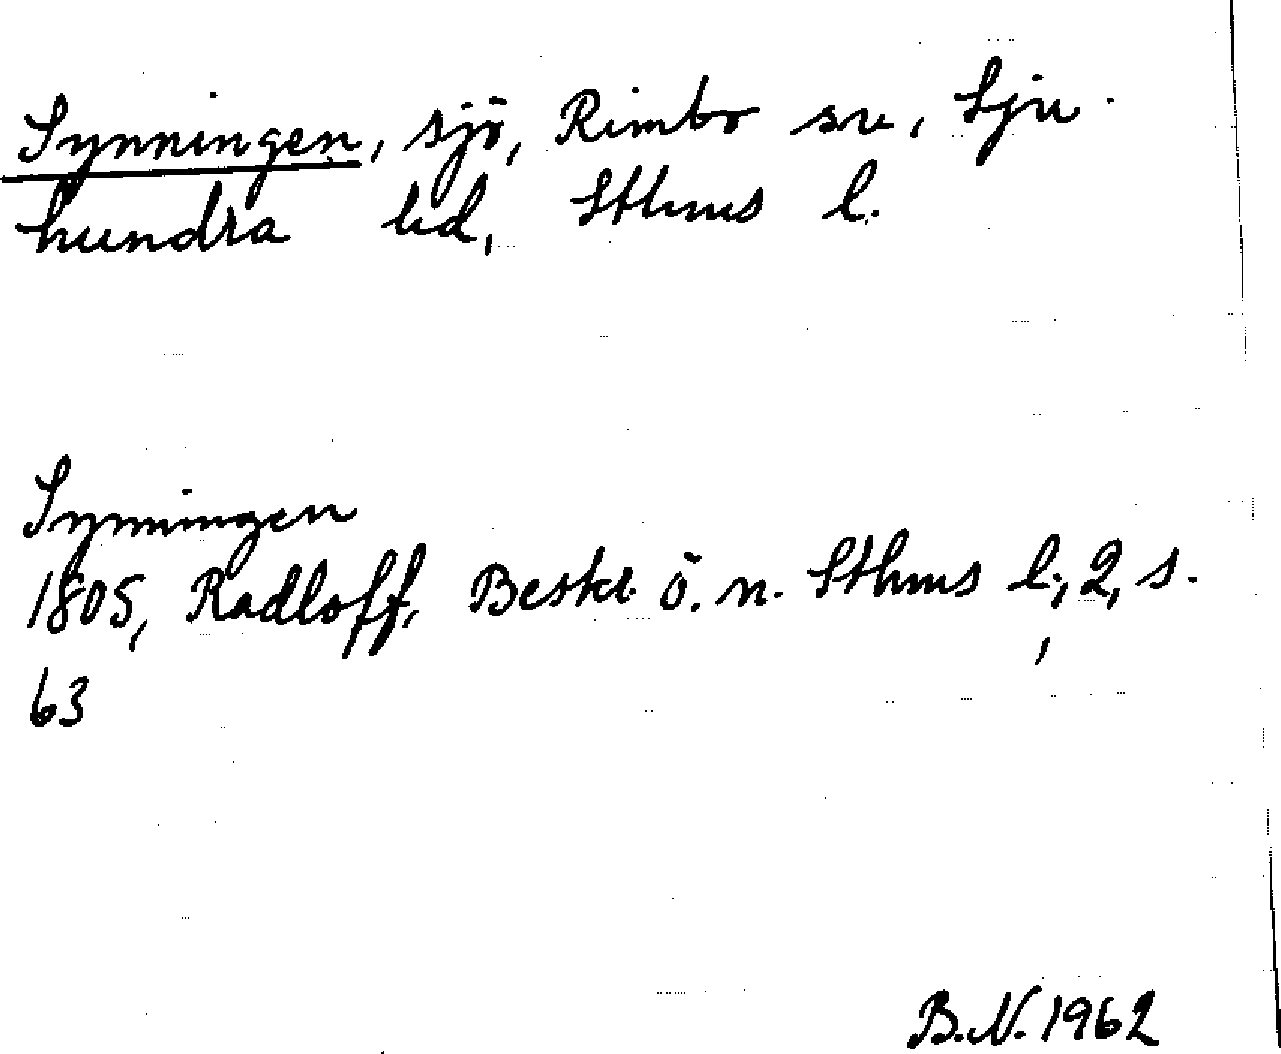 Synningen, sjö, Rimbo sn, Sju-
hundra hd, Sthms l.
Synningen
1805, Radloff, Beskr. ö. n. Sthms l., 2, s.
63
B.N. 1962